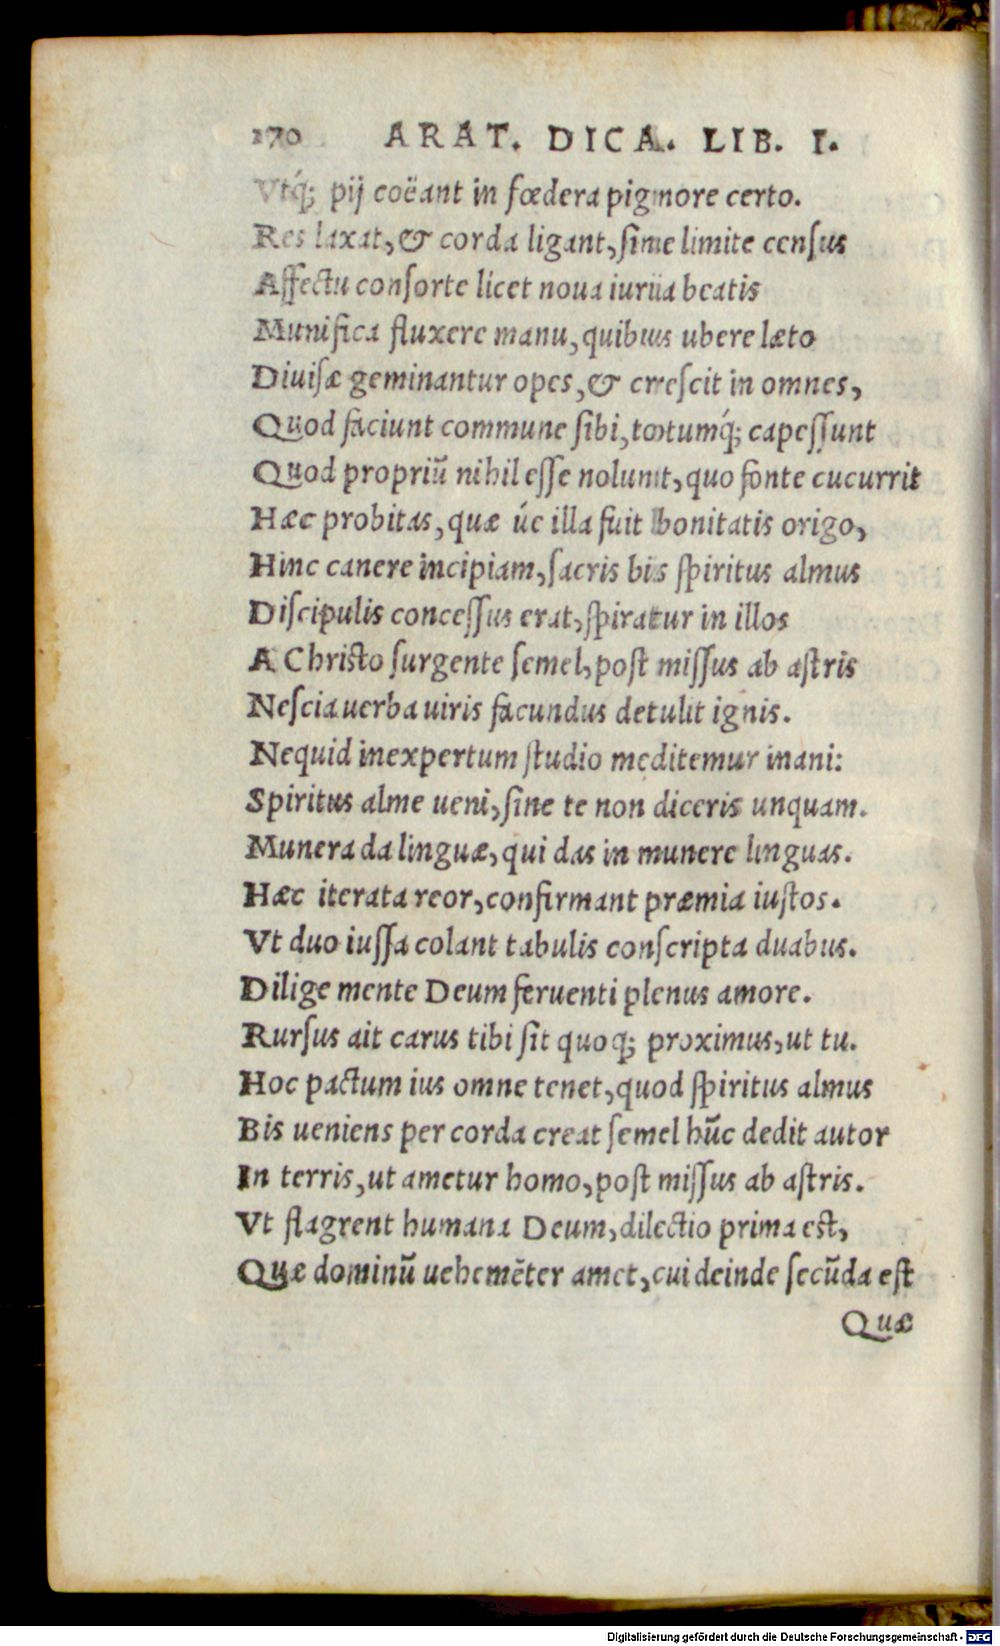 170 ARAT. DICA. LIB. I.
Vtq́; pij coëant in fœdera pignore certo.
Res laxat, & corda ligant, ſine limite cenſus
Affectu conſorte licet noua iurua beatis
Munifica fluxere manu, quibus ubere læto
Diuiſæ geminantur opes, & creſcit in omnes,
Quod faciunt commune ſibi, totumq́; capeſſunt
Quod propriū nihil eſſe nolunt, quo fonte cucurrit
Hæc probitas, quæ úc illa fuit bonitatis origo,
Hinc canere incipiam, ſacris bis ſpiritus almus
Diſcipulis conceſſus erat, ſpiratur in illos
A Chriſto ſurgente ſemel, poſt miſſus ab aſtris
Neſcia uerba uiris facundus detulit ignis.
Nequid inexpertum ſtudio meditemur inani:
Spiritus alme ueni, ſine te non diceris unquam.
Munera da linguæ, qui das in munere linguas.
Hæc iterata reor, confirmant præmia iuſtos.
Vt duo iuſſa colant tabulis conſcripta duabus.
Dilige mente Deum feruenti plenus amore.
Rurſus ait carus tibi ſit quoq; proximus, ut tu.
Hoc pactum ius omne tenet, quod ſpiritus almus
Bis ueniens per corda creat ſemel hūc dedit autor
In terris, ut ametur homo, poſt miſſus ab aſtris.
Vt flagrent humana Deum, dilectio prima eſt,
Quæ dominū uehemēter amet, cui deinde ſecūda eſt
Quæ
Digitalisierung gefördert durch die Deutsche Forschungsgemeinschaft - DFG